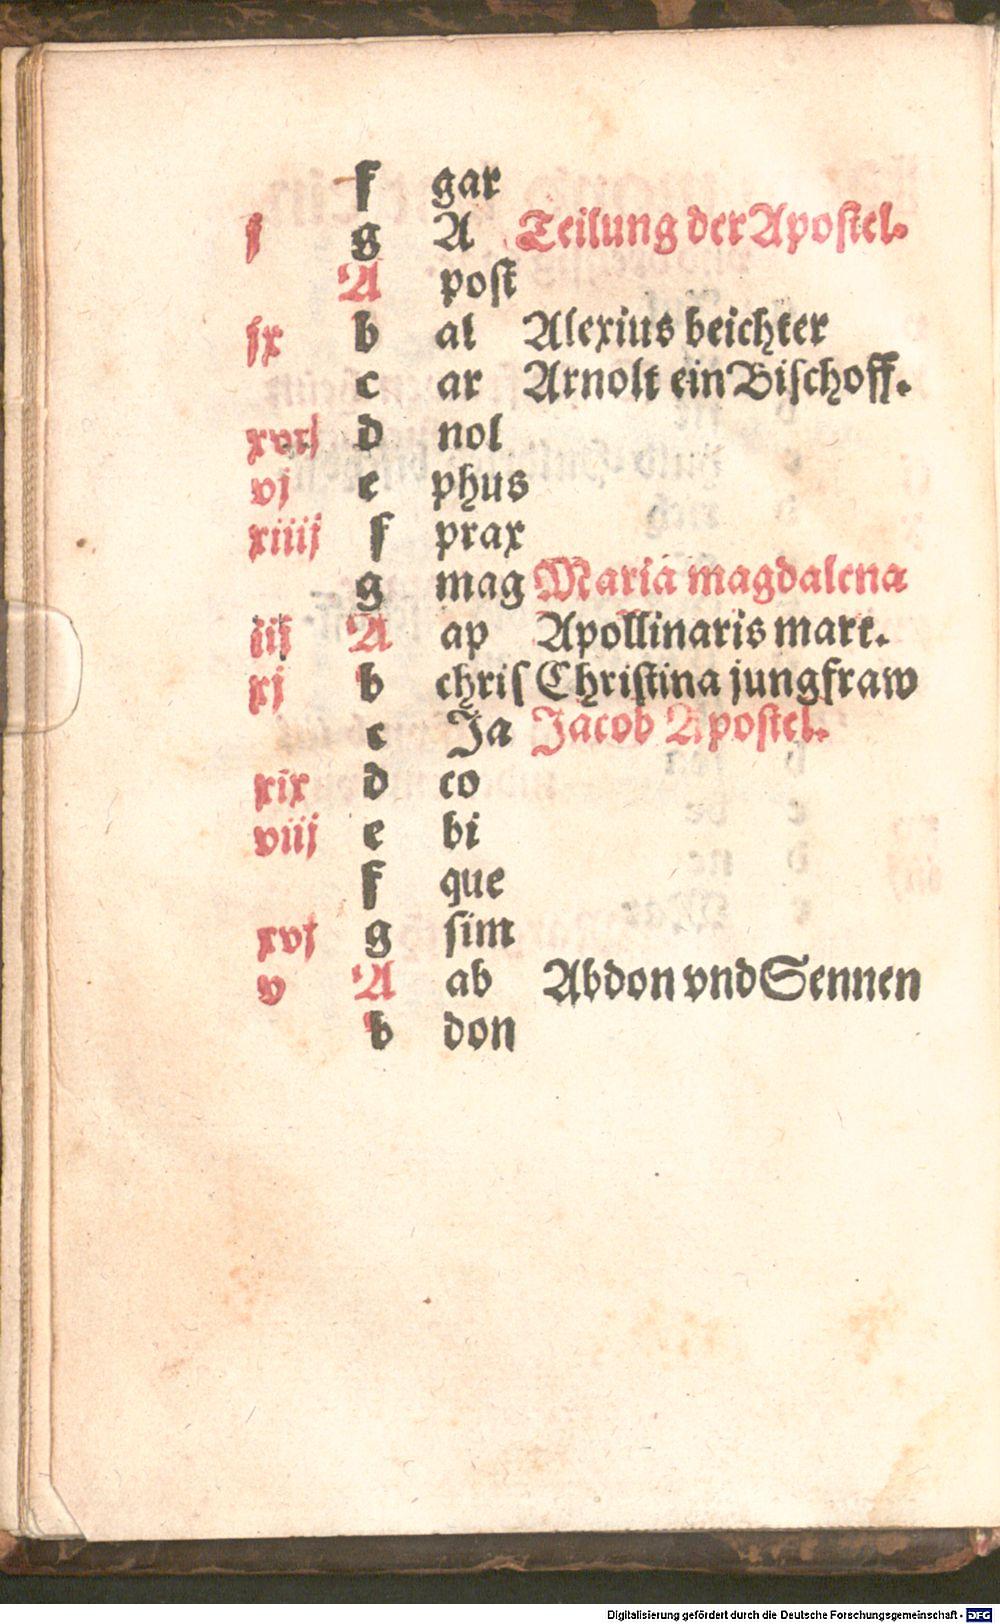 f gar
j g A Teilung der Apoſtel.
A poſt
ix b al Alexius beichter
c ar Arnolt ein Biſchoff.
xvij d nol
vj e phus
xiiij f prax
g mag Maria magdalena
iij A ap Apollinaris mart.
xj b chriſ Chriſtina jungfraw
c Ja Jacob Apoſtel.
xix d co
viij e bi
f que
xvj g ſim
v A ab Abdon vnd Sennen
b don
Digitalisierung gefördert durch die Deutsche Forschungsgemeinschaft - DFG